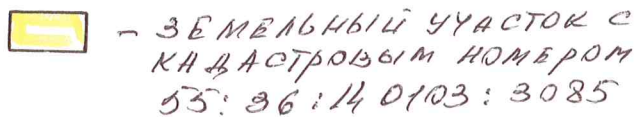 - ЗЕМЕЛЬНЫЙ УЧАСТОК С
КАДАСТРОВЫМ НОМЕРОМ
55:36:140103:3085